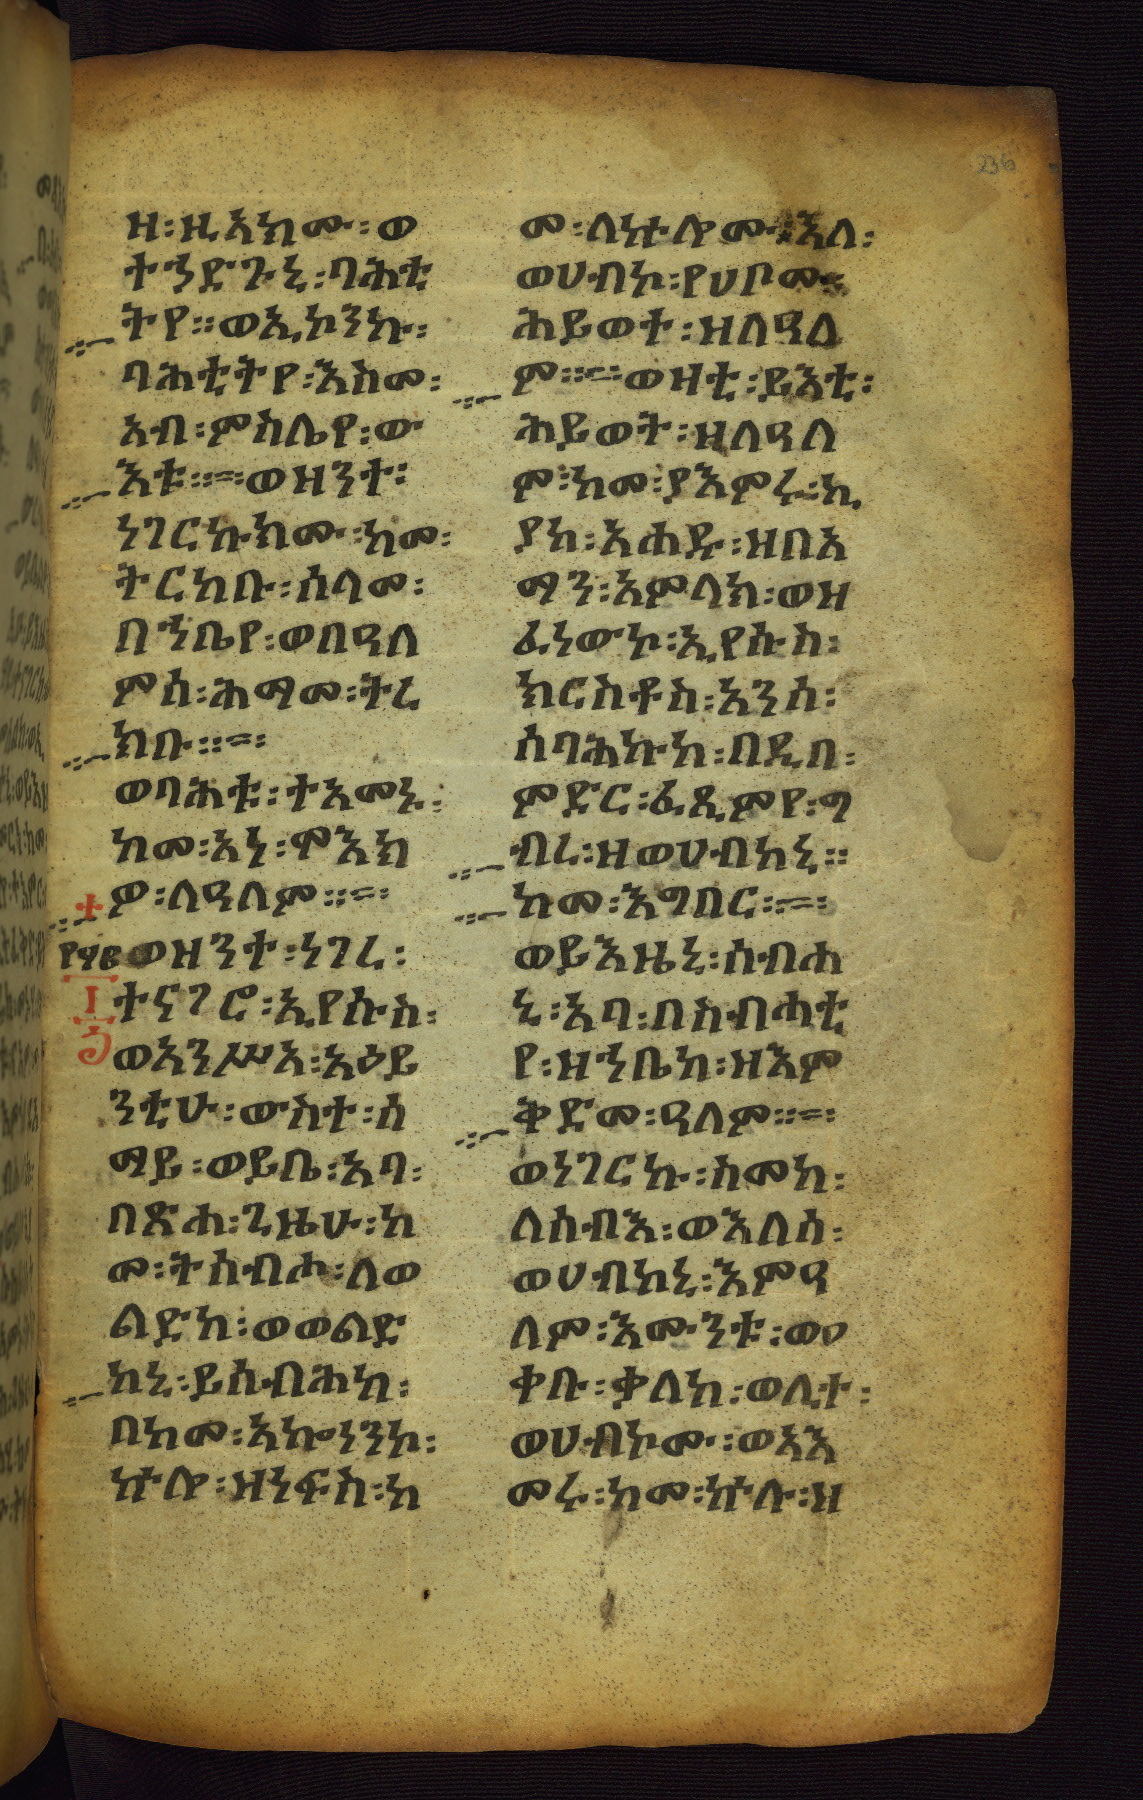 236
ዘ፡ዚአክሙ፡ወ
ተኀድጉኒ፡ባሕቲ
ትየ፡፡ወኢኮንኩ፡
ባሕቲትየ፡እስመ፡
አብ፡ምስሌየ፡ው
እቱ፡፡=፡ወዝንተ፡
ነገርኩክሙ፡ከመ፡
ትርከቡ፡ሰላመ፡
በኀቤየ፡ወበዓለ
ምሰ፡ሕማመ፡ትረ
ክቡ፡፡=፡
ወባሕቱ፡ተአመኑ፡
ከመ፡አነ፡ሞእክ
ዎ፡ለዓለም፡፡=፡
ወዝንተ፡ነገረ፡
ተናገሮ፡ኢየሱስ፡
ወአንሥአ፡አዕይ
ንቲሁ፡ውስተ፡ሰ
ማይ፡ወይቤ፡አባ፡
በጽሐ፡ጊዜሁ፡ከ
መ፡ትሰብሖ፡ለወ
ልድከ፡ወወልድ
ከኒ፡ይሰብሕከ፡
በከመ፡አኰነንኮ፡
ኵሎ፡ዘነፍስ፡ከ
መ፡ለኵሎሙ፡እለ፡
ወሀብኮ፡የሀቦሙ፡
ሕይወተ፡ዘለዓለ
ም፡፡=፡ወዛቲ፡ይእቲ፡
ሕይወት፡ዘለዓለ
ም፡ከመ፡ያእምሩ፡ኪ
ያከ፡አሐዱ፡ዘበአ
ማን፡አምላክ፡ወዘ
ፈነውኮ፡ኢየሱስ፡
ክርስቶስ፡አንሰ፡
ሰባሕኩከ፡በዲበ፡
ምድር፡ፈጺምየ፡ግ
ብረ፡ዘወሀብከኒ፡፡
ከመ፡እግበር፡፡=፡
ወይእዜኒ፡ሰብሐ
ኒ፡አባ፡በስብሐቲ
የ፡ዘኀቤከ፡ዘእም
ቅድመ፡ዓለም፡፡=፡
ወነገርኩ፡ስመከ፡
ለሰብእ፡ወእለሰ፡
ወሀብከኒ፡እምዓ
ለም፡እሙንቱ፡ወዐ
ቀቡ፡ቃለከ፡ወሊተ፡
ወሀብኮሙ፡ወአእ
መሩ፡ከመ፡ኵሉ፡ዘ